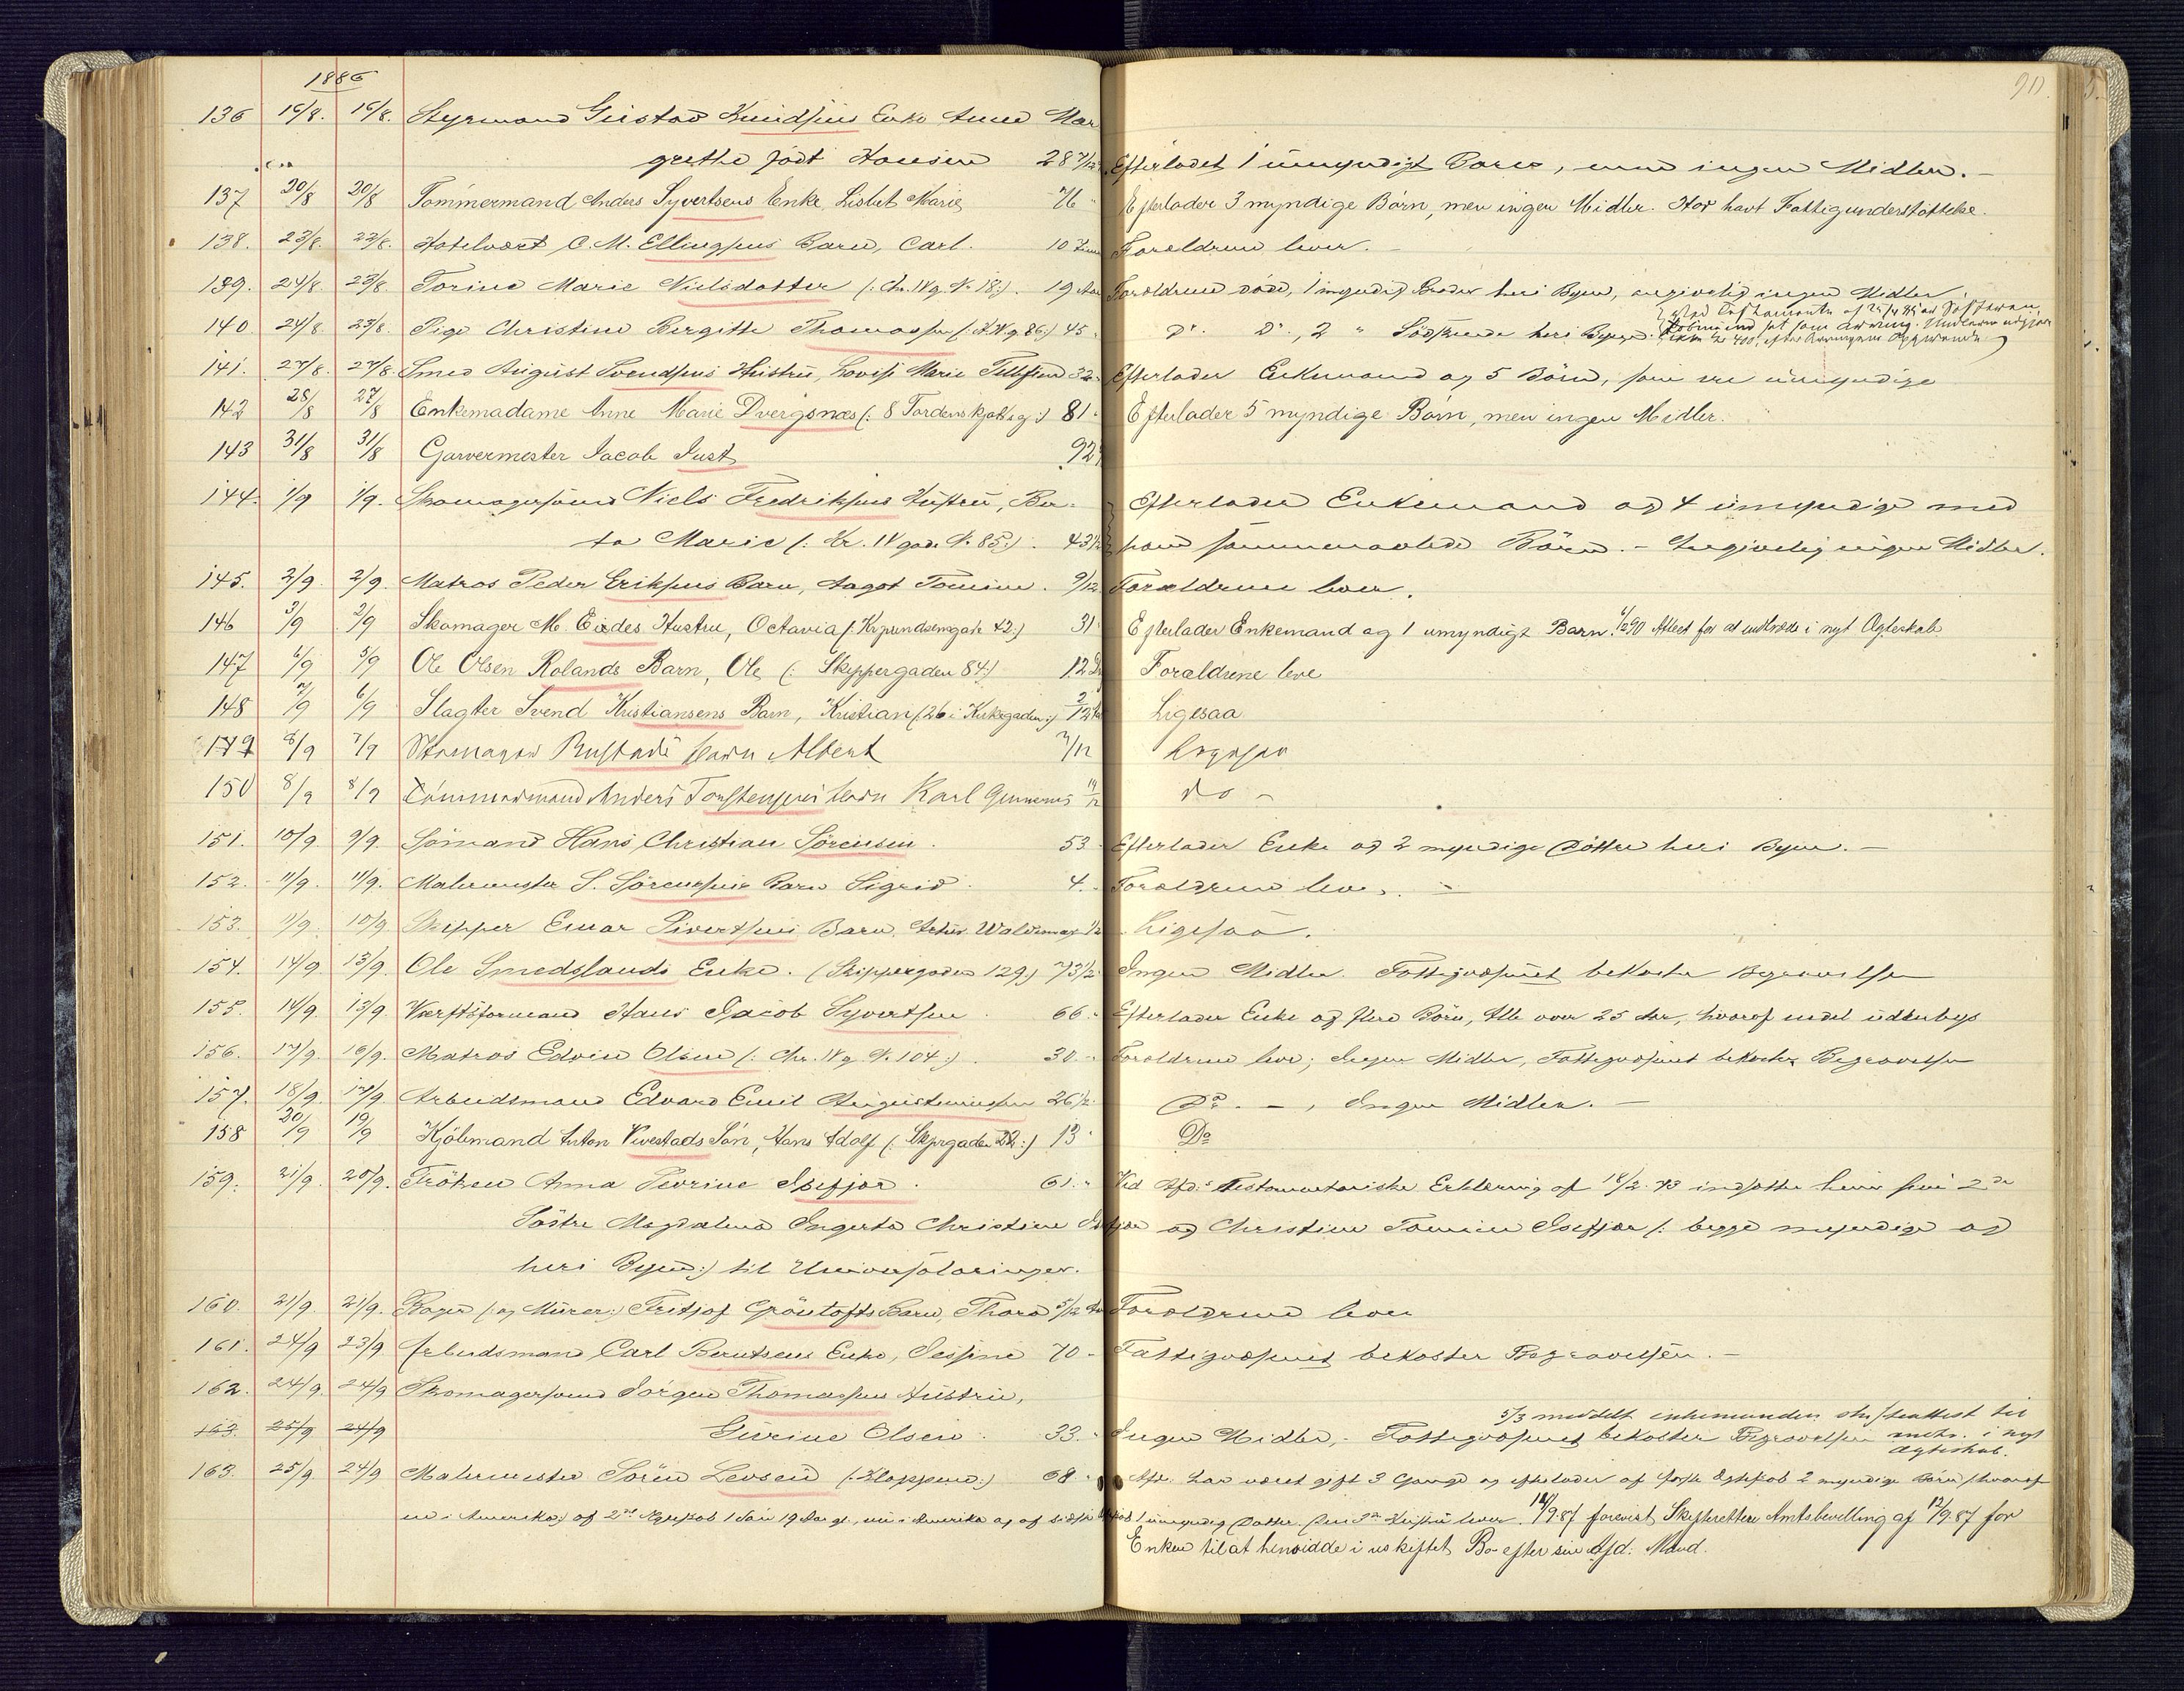 90.
1886
136 16/8. 16/8. Styrmand Gustav Knudsens Enke Anne Mar
grethe født Hansen 28 7/12 Efterladet 1 umyndigt Barn, men ingen Midler. -
137 20/8 20/8 Tömmermand Anders Syvertsens Enke, Lisbet Marie, 76 " Efterlader 3 myndige Börn, men ingen Midler. Har havt Fattigunderstöttelse.
138. 23/8. 22/8. Hotelvært C. M. Ellingsens Barn, Carl. 10 Forældrene lever. -
139. 24/8. 23/8. Torine Marie Nielsdatter (: Chr. IV g. No 18:). 19 Aar Forældrene døde, 1 myndig Broder heri Byen, angivelig ingen Midler.
140. 24/8. 23/8. Pige Christine Bergitte Thomassen 45 Do. Do., 2 " Södskende heri Byen.
141. 27/8. 27/8. Smed August Svendsens Hustru, Lovise Marie Tellefsen 32 Efterlader Enkemand og 5 Börn, som ere umyndige
142 28/8 27/8 Enkemadame Anne Marie Dvergsnæs (: 8 Tordenskjoldsg:) 81 " Efterlader 5 myndige Börn, men ingen Midler.
143 31/8 31/8 Garvermester Jacob Just 92
144. 1/9 1/9. Skomagersvend Niels Fredriksens Hustru, Ber-
ta Marie (: Kr. IV gade No 85:). 43 1/2 Efterlader Enkemand og 4 umyndige med
ham sammenavlede Börn. - Angivelig ingen Midler.
145. 2/9. 2/9. Matros Peder Eriksens Barn, Aagot Tomine. 9/12 Forældrene lever.
146 3/9 2/9 Skomager M. Eides Hustru, Octavia (: Kr 42:) 31 Efterlader Enkemand og 1 umyndigt Barn. 6/2 90 Attest for at indtræde i nyt Ægteskab
147 6/9 5/9 Ole Olsen Rolands Barn, Ole (: Skippergaden 84:) 12 Forældrene leve
148 7/9 6/9 Slagter Svend Kristiansens Barn, Kristian (26 i Kirkegaden:) 2/12 Ligesaa
149 8/9 7/9 Skomager Rustads Barn Albert 7/12 Ligesaa
150 8/9 8/9 Tömmermand Anders Torstensens Barn Karl do -
151. 10/9 9/9. Sømand Hans Christian Sörensen. 53 Efterlader Enke og 2 myndige Døttre heri Byen. -
152. 11/9. 11/9. Malermester S. Sörensens Barn Sigrid. 4. Forældrene leve. -
153. 11/9. 10/9. Skipper Einar Sivertsens Barn, Waldemar 1/2 Ligesaa.
154. 14/9. 13/9. Ole Smedslands Enke. (Skippergaden 129) 73 1/2 Ingen Midler. Fattigvæsenet bekoster Begravelsen
155. 14/9. 13/9. Værftsformand Hans Jacob Syvertsen. 66. Efterlader Enke og flere Börn, Alle over 25 Aar, hvoraf endel udenbys
156. 17/9. 16/9. Matros Edvin Olsen (: Chr. IV g. No. 104:). 30. Forældrene leve; Ingen Midler, Fattigvæsenet bekoster Begravelsen
157. 18/9. 17/9. Arbeidsmand Edvard Emil Augustiniussen 26 1/2 Do. -, Ingen Midler. -
158 20/9 19/9 Kjöbmand Anton Vivestads Sön, Hans Adolf (: 22:) 13 Do
159. 21/9. 20/9. Fröken Anna Severine Isefjær. 61. Ved Afd.s Testamentariske Erklæring af 18/2 73 indsatte hun sine 2de
Söstre Magdalena Ingerta Christine Isefjær og Christine Tomine Isefjær (: begge myndige og
heri Byen:) til Universalarvinger.
160. 21/9. 21/9. Bager (: og Murer:) Fritjof Gröntofts Barn, Thora 5/12 Forældrene lever
161. 24/9 23/9 Arbeidsmand Carl Berntsens Enke, Sessine 70 - Fattigvæsenet bekoster Begravelsen. -
162. 24/9. 24/9 Skomagersvend Jörgen Thomassens Hustru,
163. 25/9 24/9 Gurine Olsen. 33. Ingen Midler, - Fattigvæsenet bekoster Begravelsen
5/3 meddelt enkemanden skifteattest til indtr. i nyt
ægteskab.
163. 25/9 24/9 Malermester Sören Levsen (: Kloppene:) 68 Afd. har været gift 3 Gange og efterlader af første Egteskab 2 myndige Børn hvoraf
en i Amerika; af 2det Egteskab 1 Sön 19 Aar gl., nu i Amerika og af sidste 1 umyndig Datter. 3die Hustru lever. 14/9.87 forevist Skifteretten Amtsbevilling af 12/9.87 for
Enken til at hensidde i uskiftet Bo efter sin Afd. Mand.